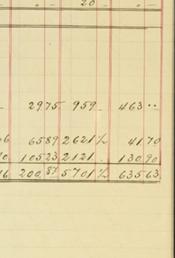 20
2975 959 463 ..
6589 2621½ 4170
10523 2121 13090
200 87 5701½ 63563